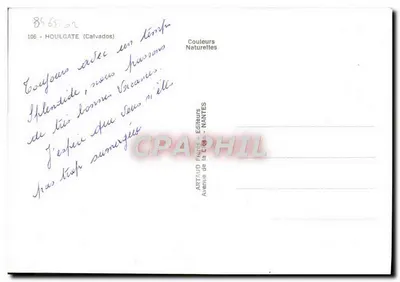 186 - HOULGATE (Calvados)
Couleurs
Naturelles
Toujours avec un temps
splendide, nous passons
de très bonnes vacances.
J'espère que vous n'êtes
pas trop submergés
ARTAUD Père Editeurs
Avenue de la - NANTES
CPAPHIL